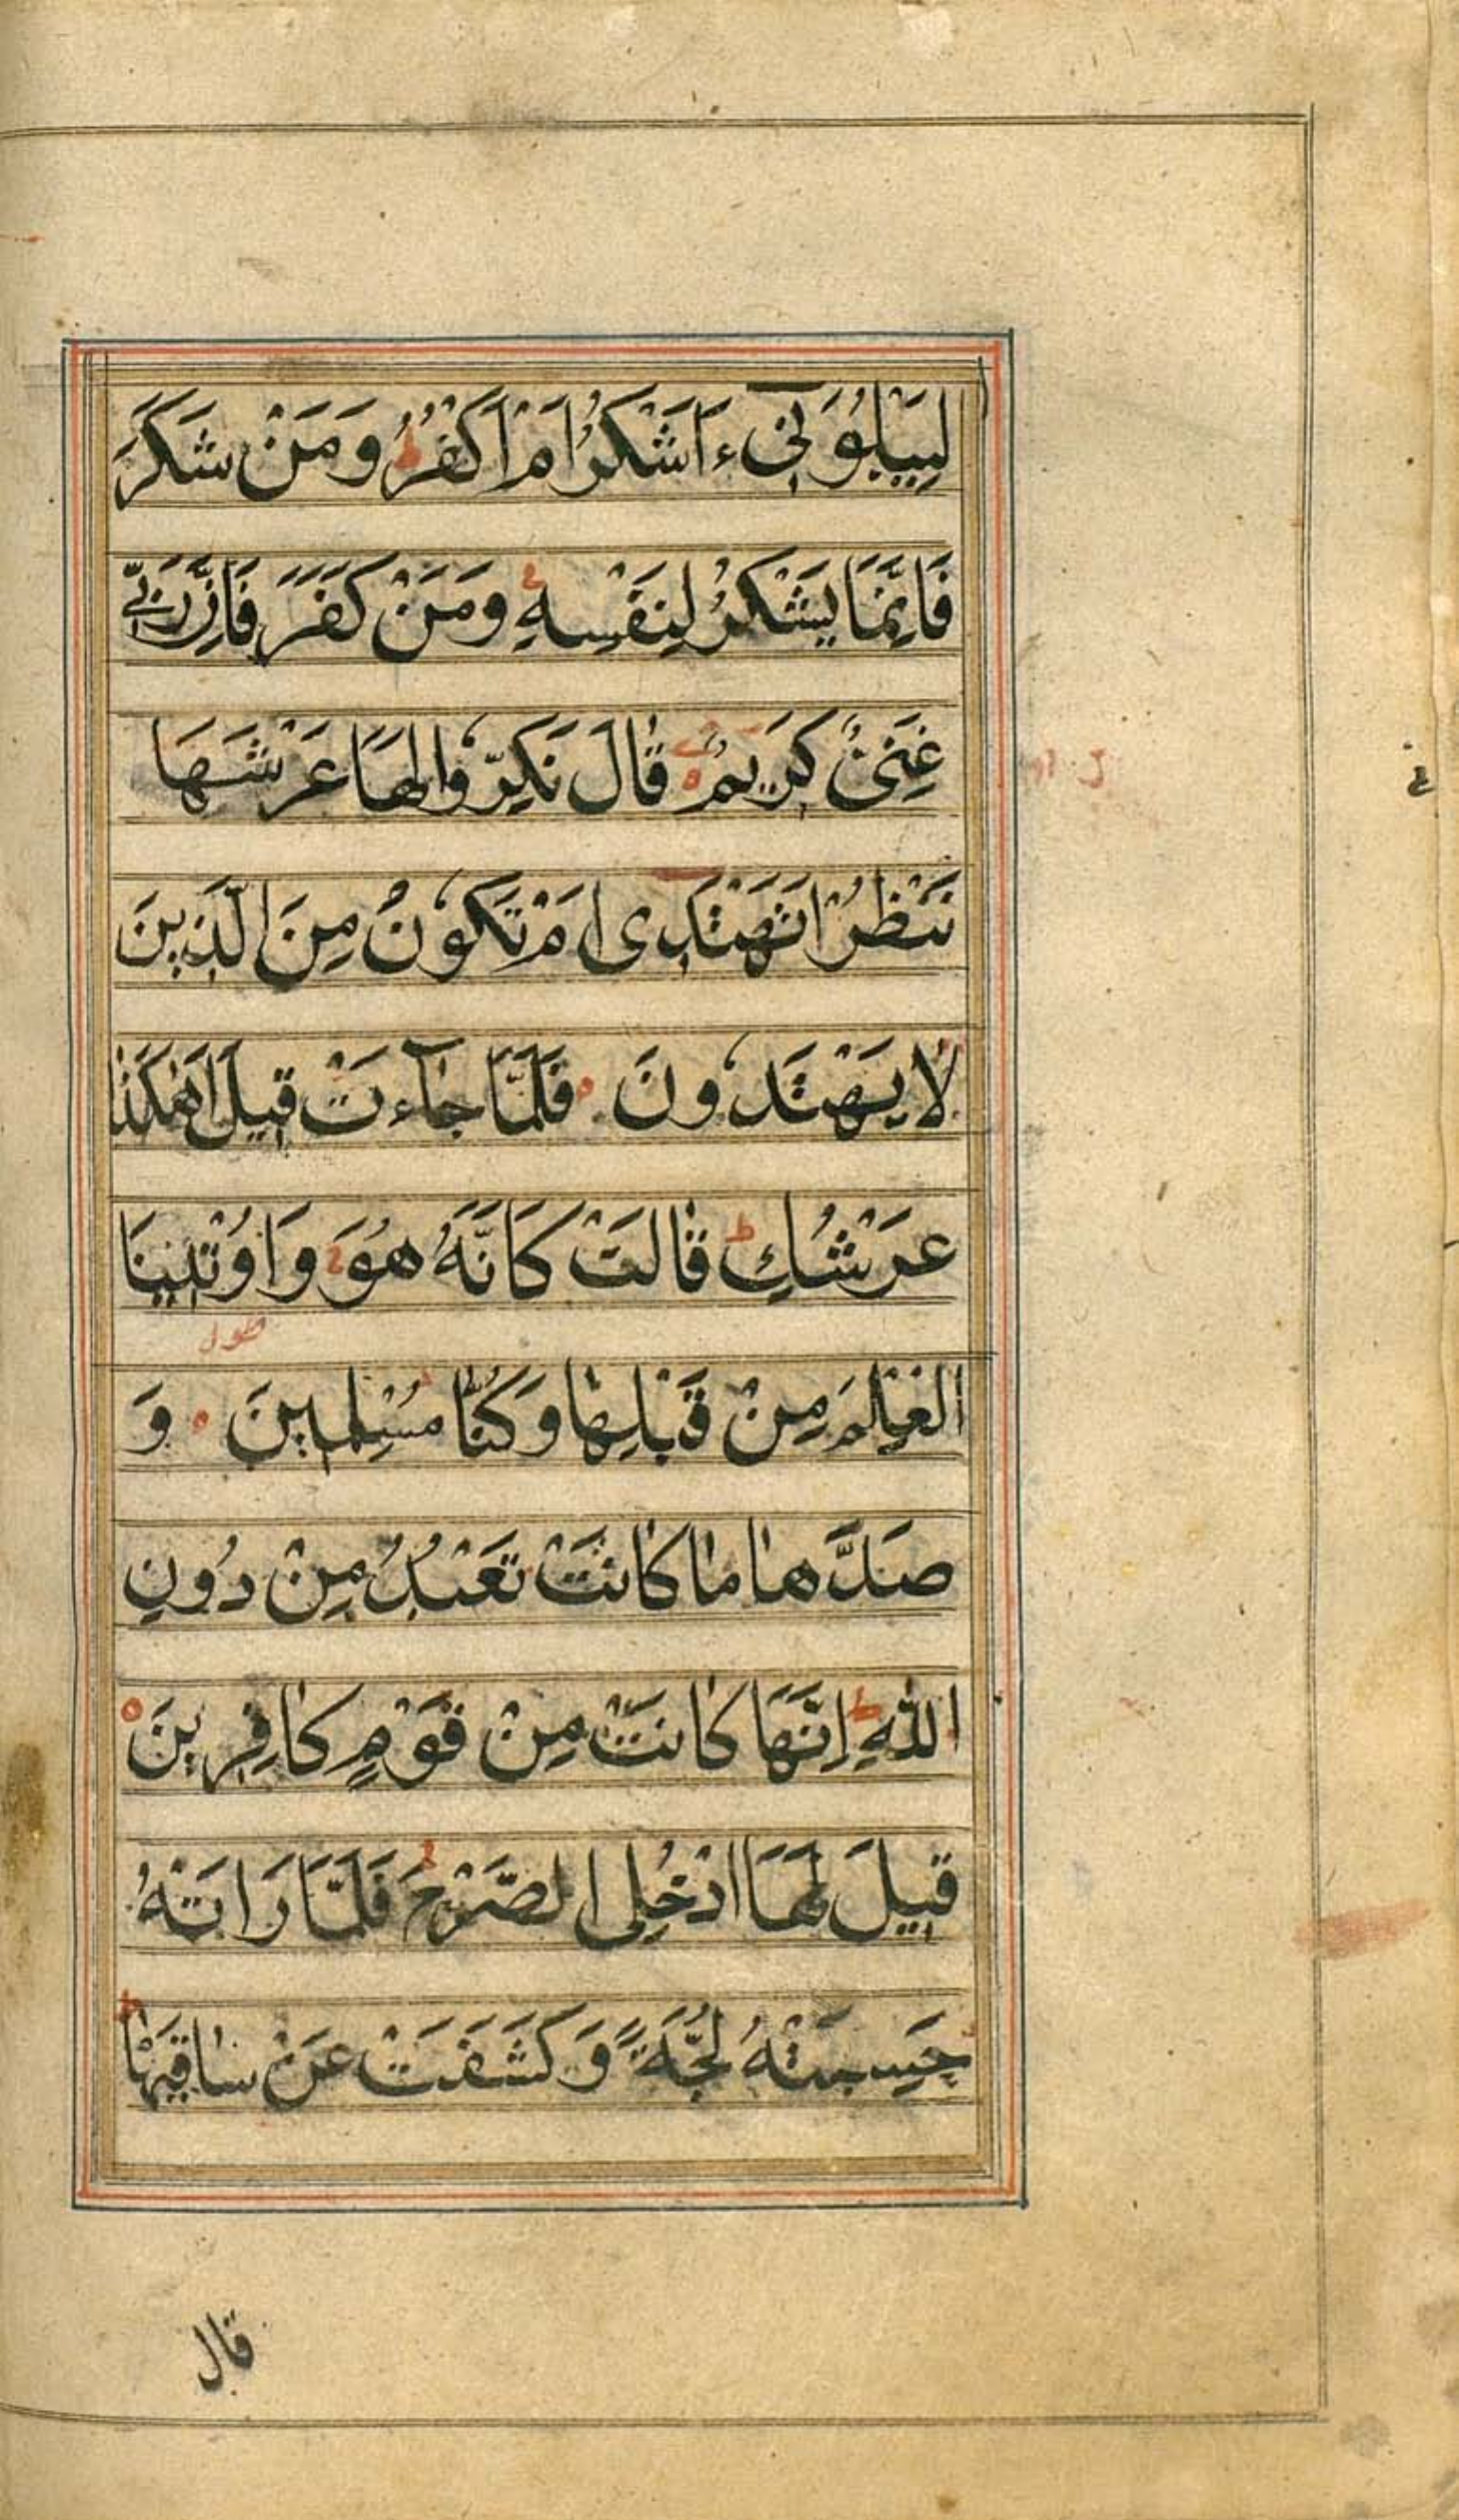 لِيَبْلُوَنِيٓ ءَاَشْكُرُ اَمْ اَكْفُرُ ط وَمَنْ شَكَرَ
فَاِنَّمَا يَشْكُرُ لِنَفْسِهٖ وَمَنْ كَفَرَ فَاِنَّ رَبِّي
غَنِيٌّ كَرِيمٌ قٰالَ نَكِّرُوا لَهَا عَرْشَهَا
نَنْظُرْ اَتَهْتَدِى اَمْ تَكُونُ مِنَ الَّذِينَ
لٰا يَهْتَدُونَ فَلَمَّا جٰآءَتْ قِيلَ اَهٰكَذٰا
عَرْشُكِ ط قٰالَتْ كَاَنَّهُ هُوَ وَاُوتِينَا
الْعِلْمَ مِنْ قَبْلِهٰا وَكُنّٰا مُسْلِمِينَ وَ
صَدَّهٰا مٰا كٰانَتْ تَعْبُدُ مِنْ دُونِ
اللّٰهِ ط اِنَّهَا كٰانَتْ مِنْ قَوْمٍ كٰافِرِينَ
قِيلَ لَهَا ادْخُلِي الصَّرْحَ فَلَمَّا رَاَتْهُ
حَسِبَتْهُ لُجَّةً وَكَشَفَتْ عَنْ سٰاقَيْهٰا ط
قال